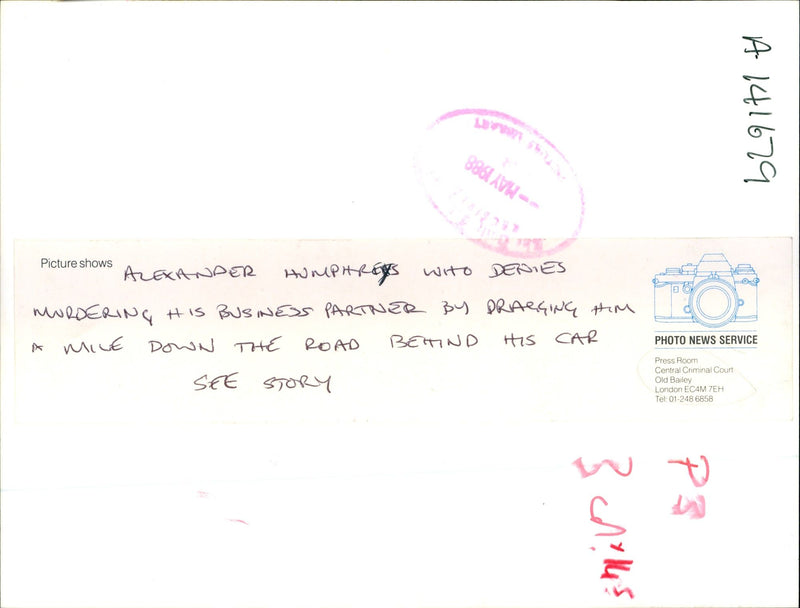 A 141679
PICTURE LIBRARY
- MAY 1988
Picture shows ALEXANDER HUMPHREYS WHO DENIES
MURDERING HIS BUSINESS PARTNER BY DRAGGING HIM
A MILE DOWN THE ROAD BEHIND HIS CAR
SEE STORY
PHOTO NEWS SERVICE
Press Room
Central Criminal Court
Old Bailey
London EC4M 7EH
Tel: 01-248 6858